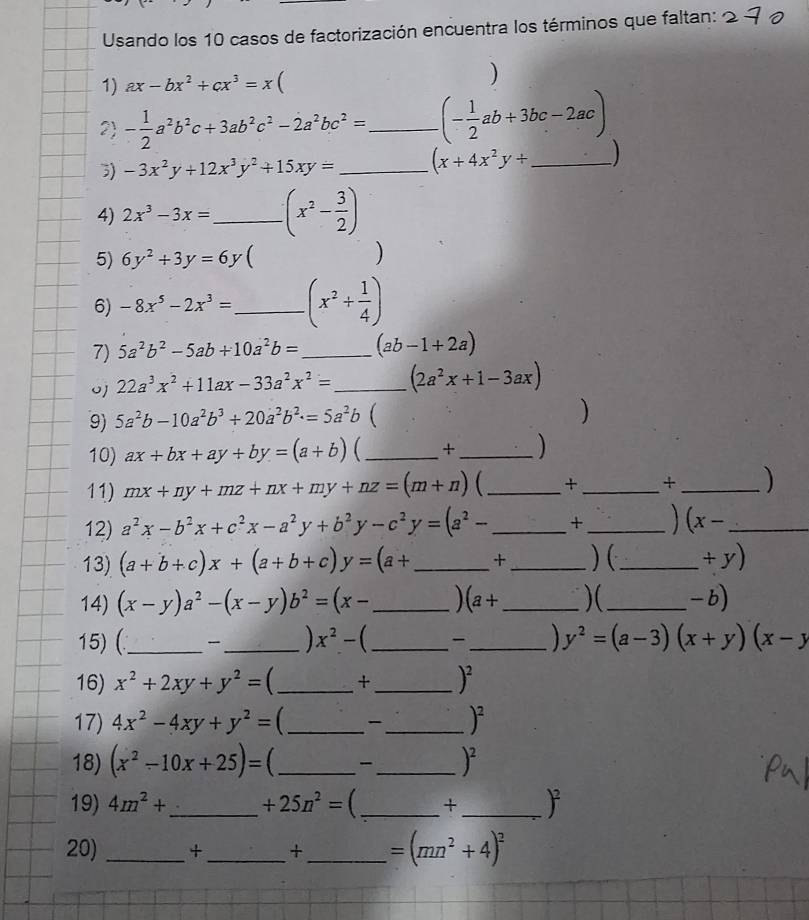 Usando los 10 casos de factorización encuentra los términos que faltan: 270
1) ax − bx² + cx³ = x ( )
2) −1/2 a²b²c + 3ab²c² − 2a²bc² = ______ (−1/2 ab + 3bc − 2ac)
3) −3x²y + 12x³y² + 15xy = ______ (x + 4x²y + ______)
4) 2x³ − 3x = ______ (x² − 3/2)
5) 6y² + 3y = 6y ( )
6) −8x⁵ − 2x³ = ______ (x² + 1/4)
7) 5a²b² − 5ab + 10a²b = ______ (ab − 1 + 2a)
22a³x² + 11ax − 33a²x² = ______ (2a²x + 1 − 3ax)
9) 5a²b − 10a²b³ + 20a²b² = 5a²b ( )
10) ax + bx + ay + by = (a + b) (______ + ______)
11) mx + ny + mz + nx + my + nz = (m + n) (______ + ______ + ______)
12) a²x − b²x + c²x − a²y + b²y − c²y = (a² − ______ + ______) (x − ______
13) (a + b + c)x + (a + b + c)y = (a + ______ + ______) (______ + y)
14) (x − y)a² − (x − y)b² = (x − ______)(a + ______)(______ − b)
15) (______ − ______)x² − (______ − ______)y² = (a − 3) (x + y) (x − y
16) x² + 2xy + y² = (______ + ______)²
17) 4x² − 4xy + y² = (______ − ______)²
18) (x² − 10x + 25) = (______ − ______)²
19) 4m² + ______ + 25n² = (______ + ______)²
20) ______ + ______ + ______ = (mn² + 4)²